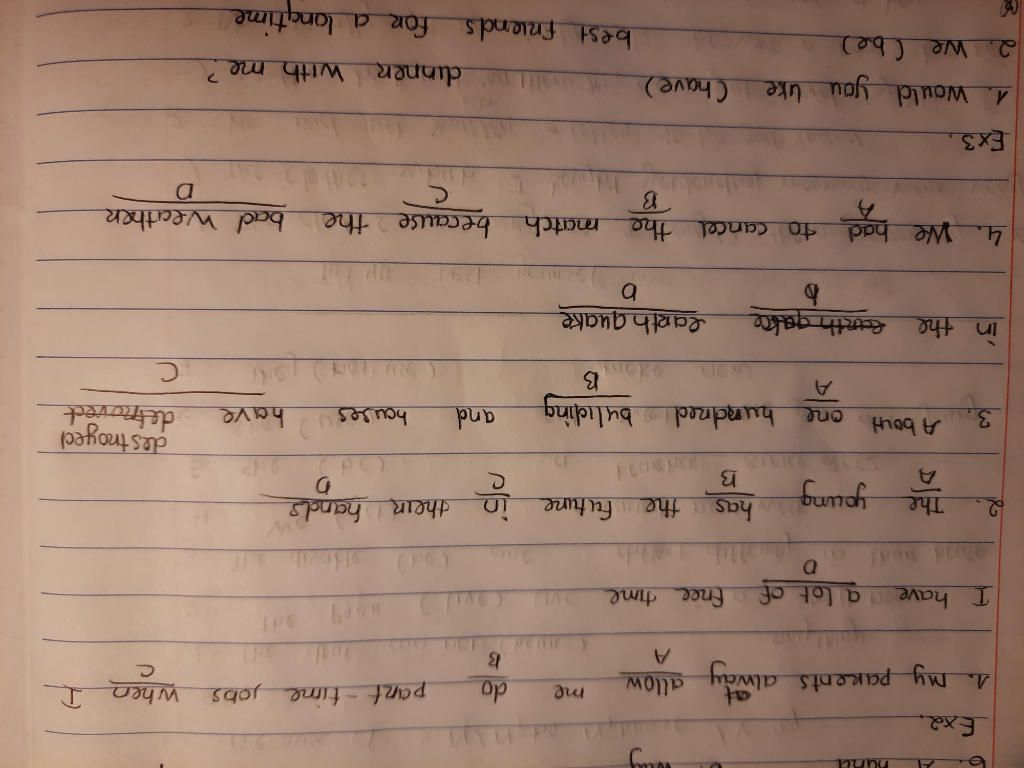 6. A hand
Ex2.
1. My parents alway at allow me do part-time jobs when I
A B C
I have a lot of free time
D
2. The young has the future in their hands
A B C D
destroyed
3. About one hundred buliding and houses have detroyed
A B C
in the earthqake earthquake
D D
4. We had to cancel the match because the bad weather
A B C D
Ex3.
1. Would you like (have) dinner with me?
2. We (be) best friends for a longtime